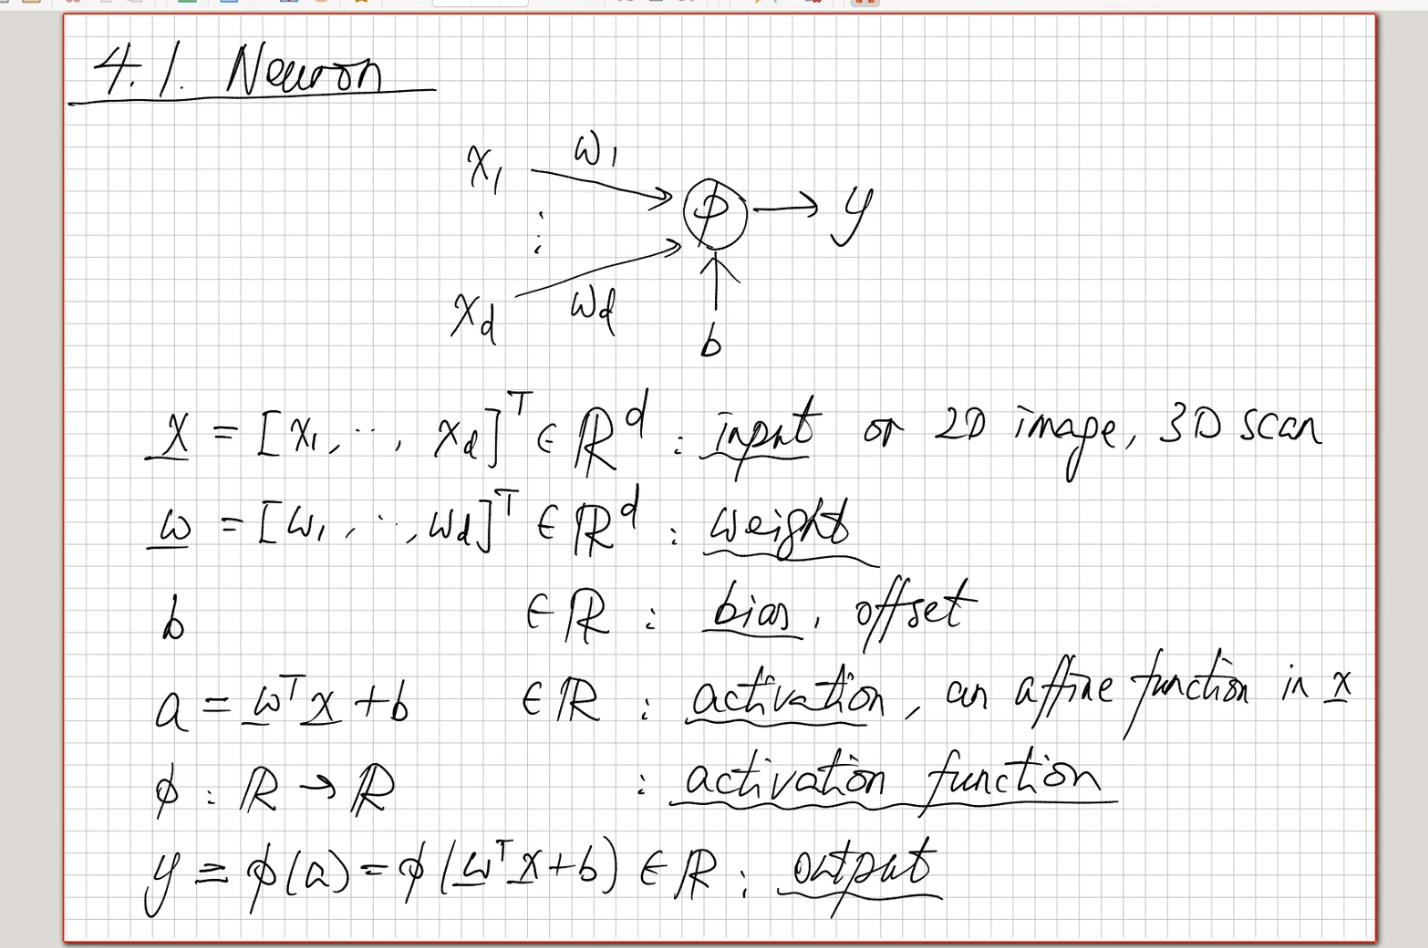 4.1. Neuron
x₁ w₁
⋮ ϕ → y
x_d w_d
b
x = [x₁, ⋯, x_d]ᵀ ∈ ℝᵈ : input or 2D image, 3D scan
w = [w₁, ⋯, w_d]ᵀ ∈ ℝᵈ : weight
b ∈ ℝ : bias, offset
a = wᵀx + b ∈ ℝ : activation, an affine function in x
ϕ : ℝ → ℝ : activation function
y = ϕ(a) = ϕ(wᵀx+b) ∈ ℝ : output